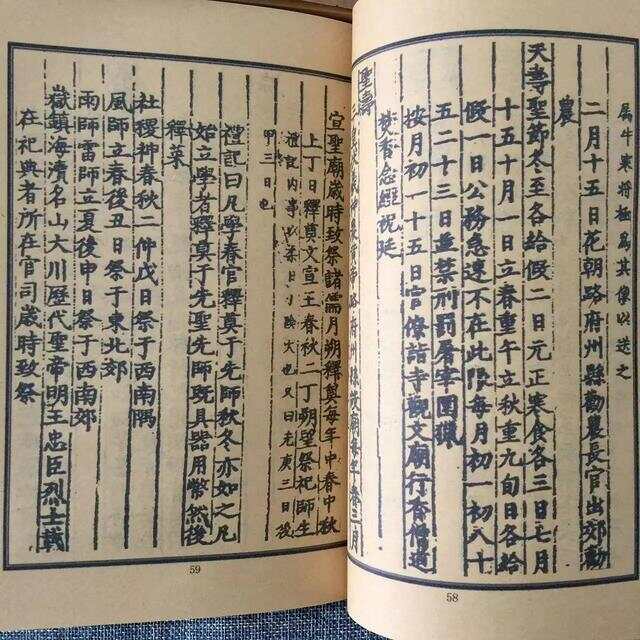 属牛寒將極爲其像以送之
二月十五日花朝路府州縣勸農長官出郊勸
農
天壽聖節冬至各給假二日元正寒食各三日七月
十五十月一日立春重午立秋重九旬日各給
假一日公務急速不在此限每月初一初八十
五二十三日並禁刑罰屠宰圍獵
按月初一十五日官僚詣寺觀文廟行香僧道
焚香念經祝延
聖壽
路府州縣設廟每年春三月
58
宣聖廟歲時致祭諸儒月朔釋奠每年中春中秋
上丁日釋奠文宣王春秋二丁朔望祭祀師生
禮記内事以柔日小陰大也又曰先庚三日後
甲三日也
禮記曰凡學春官釋奠于先師秋冬亦如之凡
始立學者釋奠于先聖先師既具器用幣然後
釋菜
社稷神春秋二仲戊日祭于西南隅
風師立春後丑日祭于東北郊
雨師雷師立夏後申日祭于西南郊
嶽鎮海瀆名山大川歷代聖帝明王忠臣烈士載
在祀典者所在官司歲時致祭
59